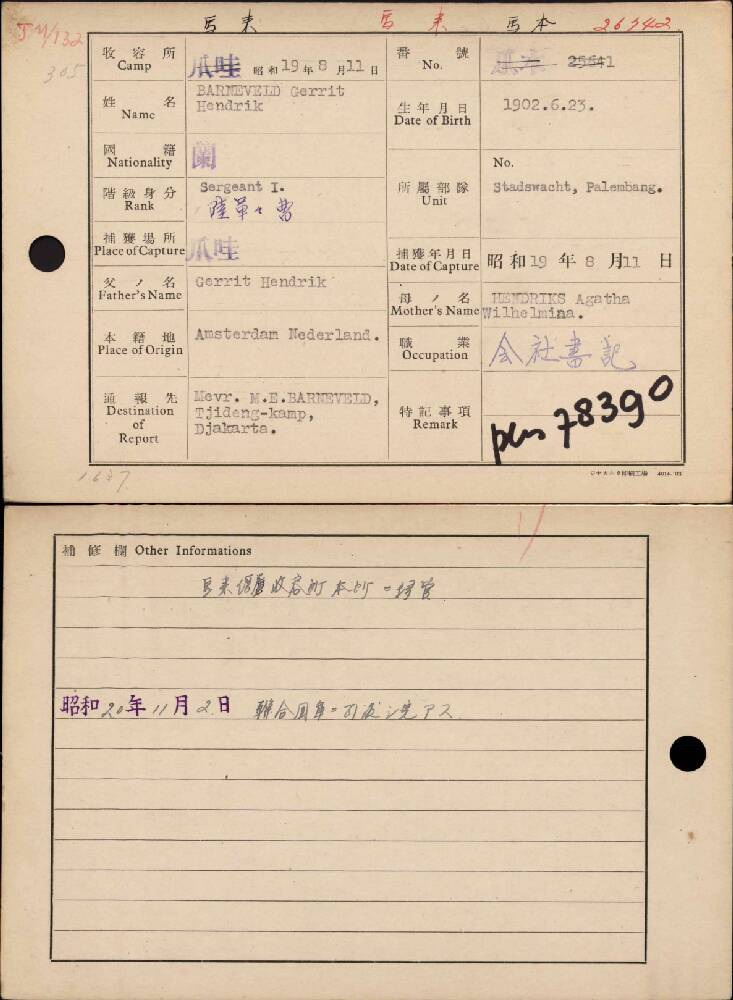 馬来 馬来 馬本 26342
JM/132
305
收容所 Camp 爪哇 昭和19年8月11日
番號 No. 25641
姓名 Name BARNEVELD Gerrit
Hendrik
生年月日 Date of Birth 1902.6.23.
國籍 Nationality 蘭
階級身分 Rank Sergeant I.
所屬部隊 Unit No.
Stadswacht, Palembang.
捕獲場所 Place of Capture 爪哇
捕獲年月日 Date of Capture 昭和19年8月11日
父ノ名 Father's Name Gerrit Hendrik
母ノ名 Mother's Name HENDRIKS Agatha
Wilhelmina.
本籍地 Place of Origin Amsterdam Nederland.
職業 Occupation 会社書記
通報先 Destination of Report Mevr. M.E.BARNEVELD,
Tjideng-kamp,
Djakarta.
特記事項 Remark
78390
補修欄 Other Informations
昭和20年11月2日 聯合国軍